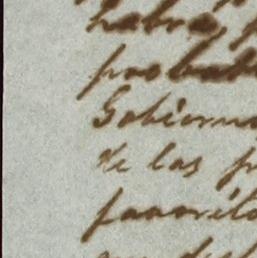 habra
probab
Gobierno
de las pr
favorito